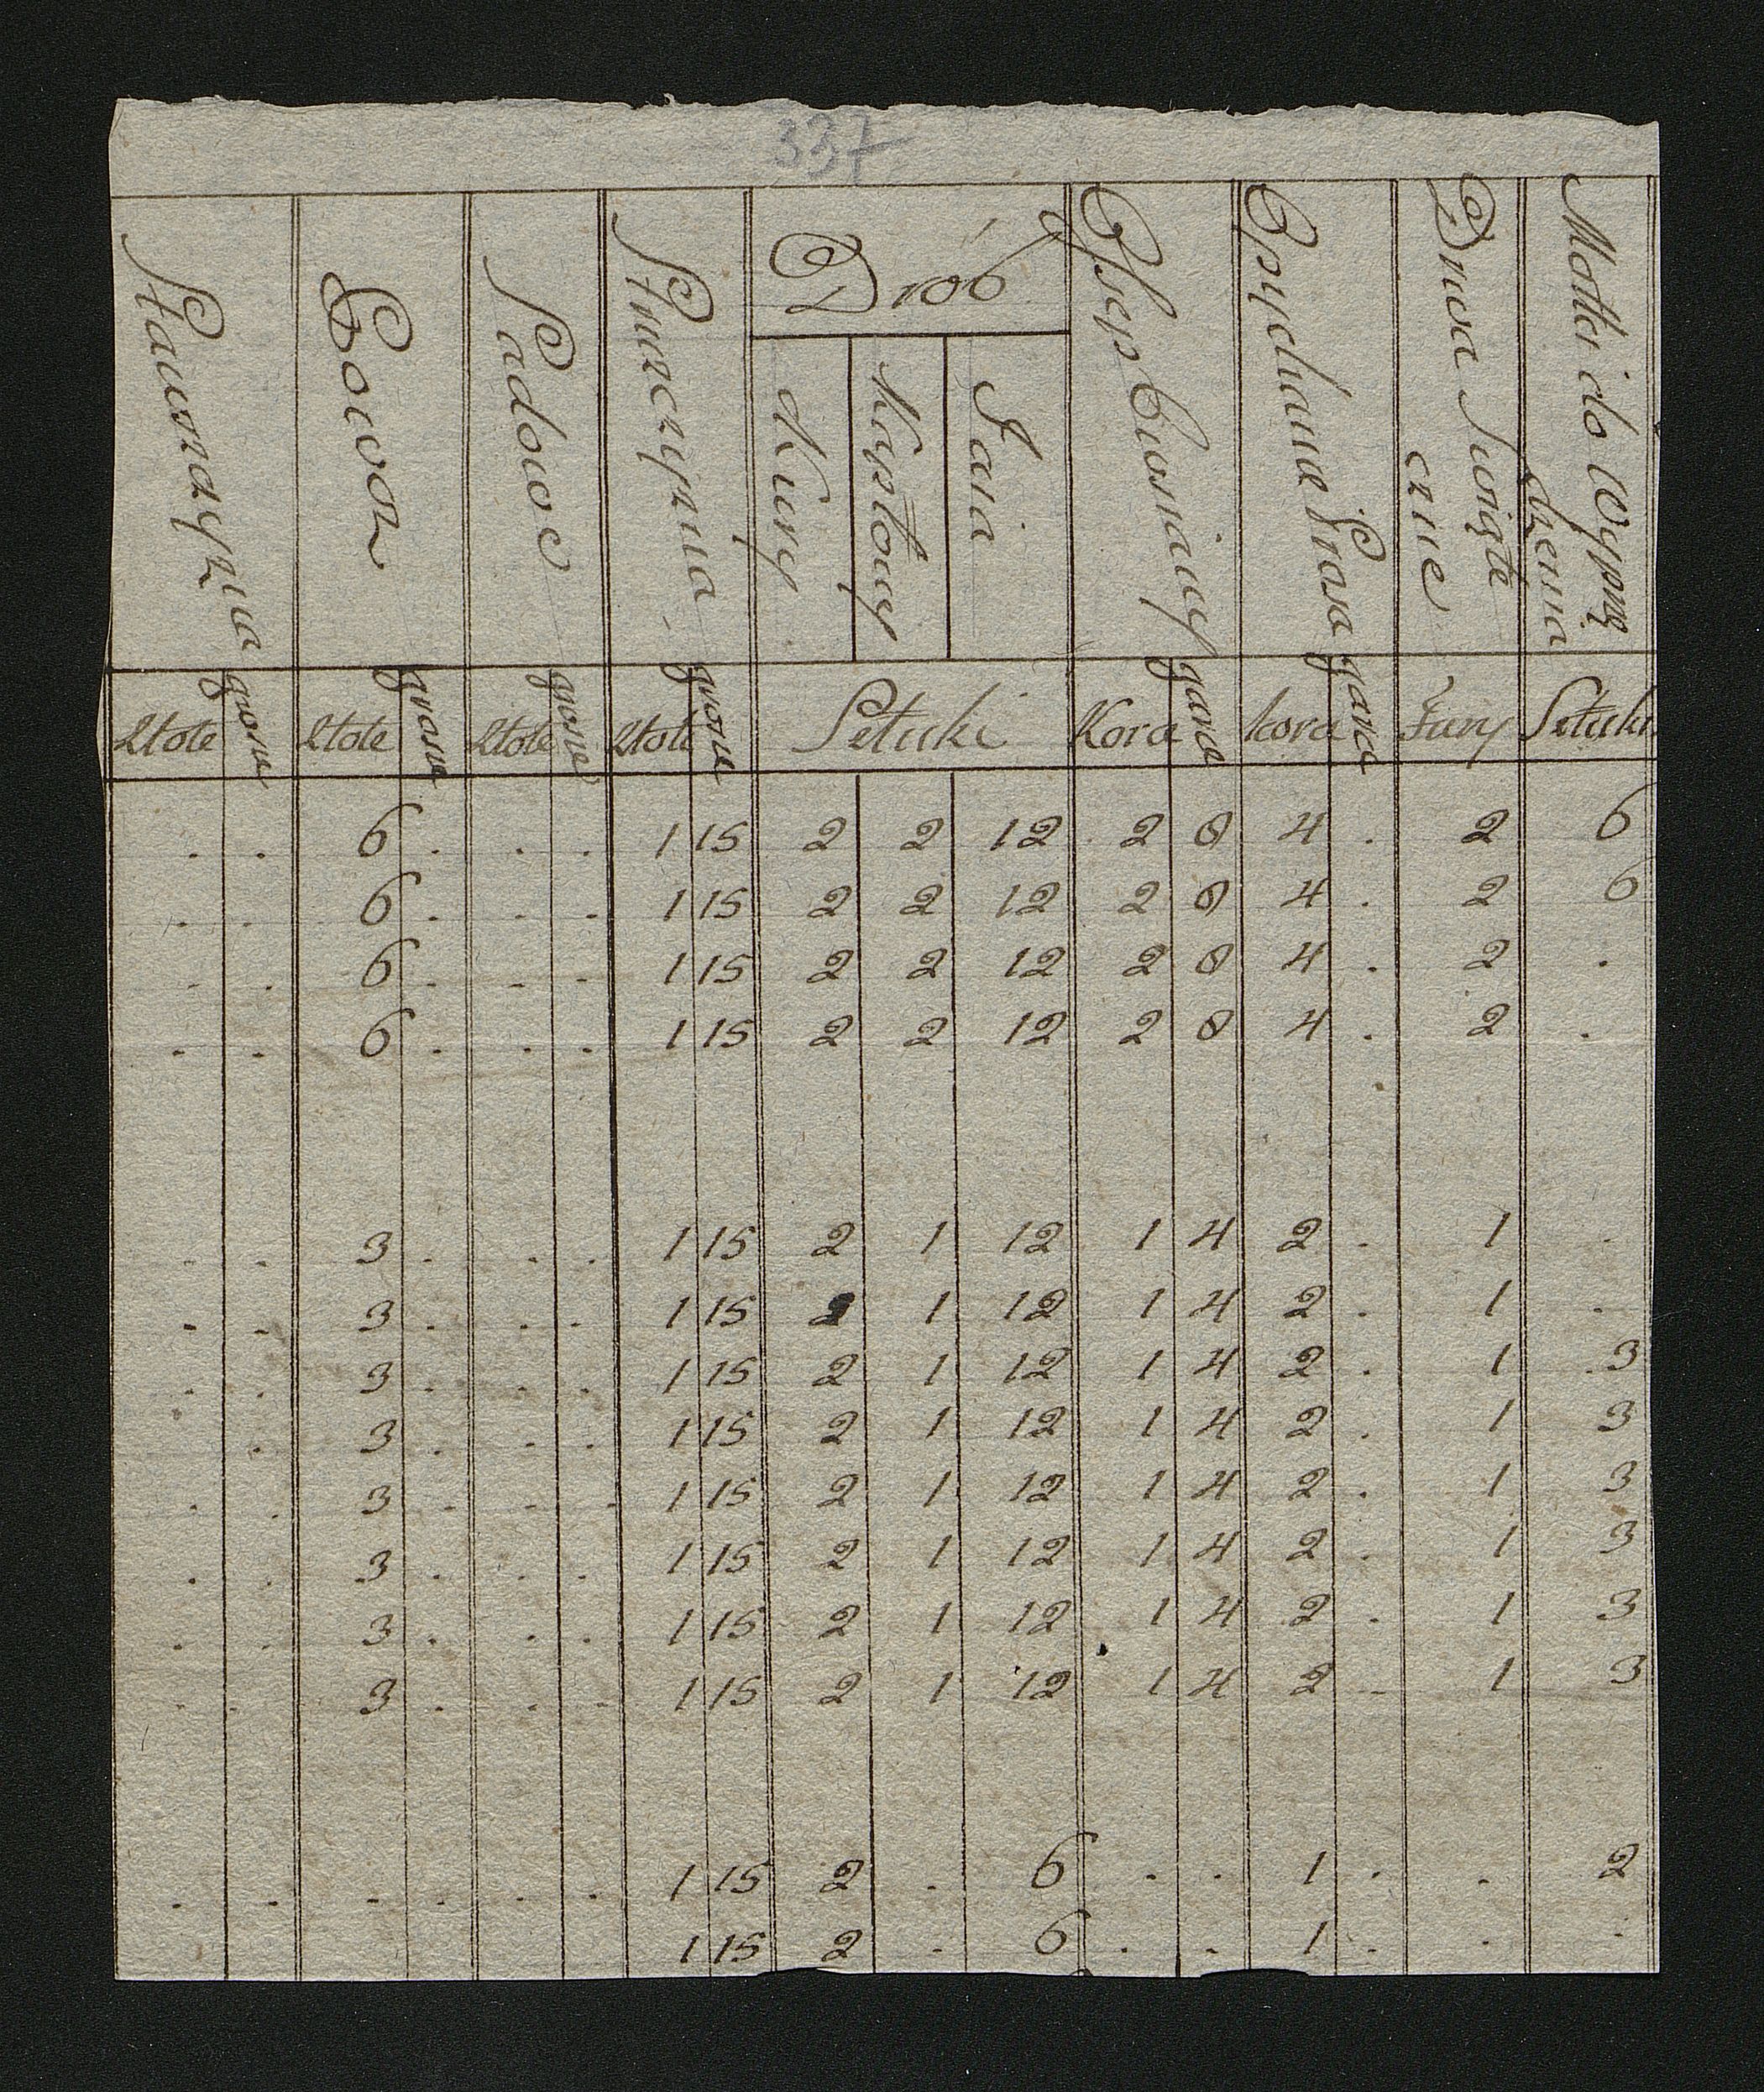 337
Stawszczyzna
Sowoz
Sadowe
Strużczyzna
Drób
Kury
Kapłony
Jaia
Ossep Owsiany
Opychane Prosa
Drwa Świąteczne
Motki do Wyprzędzenia
Złote grosze Złote grosze Złote grosze Złote grosze Sztuki Korce garce korce garce Fury Sztuki
. . 6 . . . 1 15 2 2 12 2 8 4 . 2 6
. . 6 . . . 1 15 2 2 12 2 8 4 . 2 6
. . 6 . . . 1 15 2 2 12 2 8 4 . 2 .
. . 6 . . . 1 15 2 2 12 2 8 4 . 2 .
. . 3 . . . 1 15 2 1 12 1 4 2 . 1 .
. . 3 . . . 1 15 2 1 12 1 4 2 . 1 .
. . 3 . . . 1 15 2 1 12 1 4 2 . 1 3
. . 3 . . . 1 15 2 1 12 1 4 2 . 1 3
. . 3 . . . 1 15 2 1 12 1 4 2 . 1 3
. . 3 . . . 1 15 2 1 12 1 4 2 . 1 3
. . 3 . . . 1 15 2 1 12 1 4 2 . 1 3
. . 3 . . . 1 15 2 1 12 1 4 2 . 1 3
. . . . . . 1 15 2 . 6 . . 1 . . 2
1 15 2 . 6 . . 1 . . .